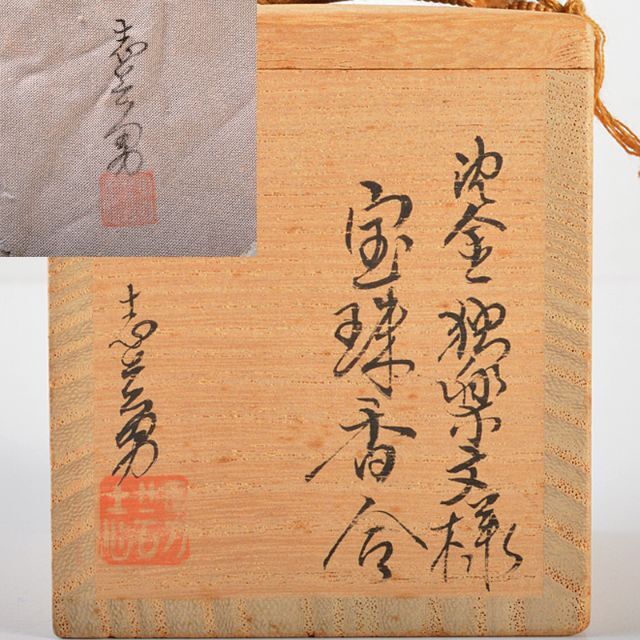 沈金独楽文様
宝珠香合
志芸男
志芸男